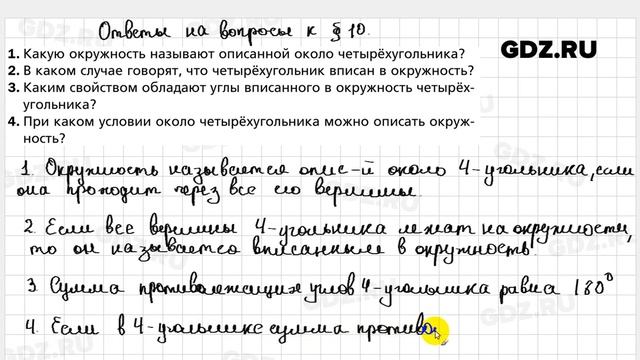 Ответы на вопросы к § 10.
GDZ.RU
1. Какую окружность называют описанной около четырёхугольника?
2. В каком случае говорят, что четырёхугольник вписан в окружность?
3. Каким свойством обладают углы вписанного в окружность четырёх-
угольника?
4. При каком условии около четырёхугольника можно описать окруж-
ность?
1. Окружность называется опис-й около 4-угольника, если
она проходит через все его вершины.
2. Если все вершины 4-угольника лежат на окружности,
то он называется вписанным в окружность.
3. Сумма противолежащих углов 4-угольника равна 180⁰
4. Если в 4-угольнике сумма противо